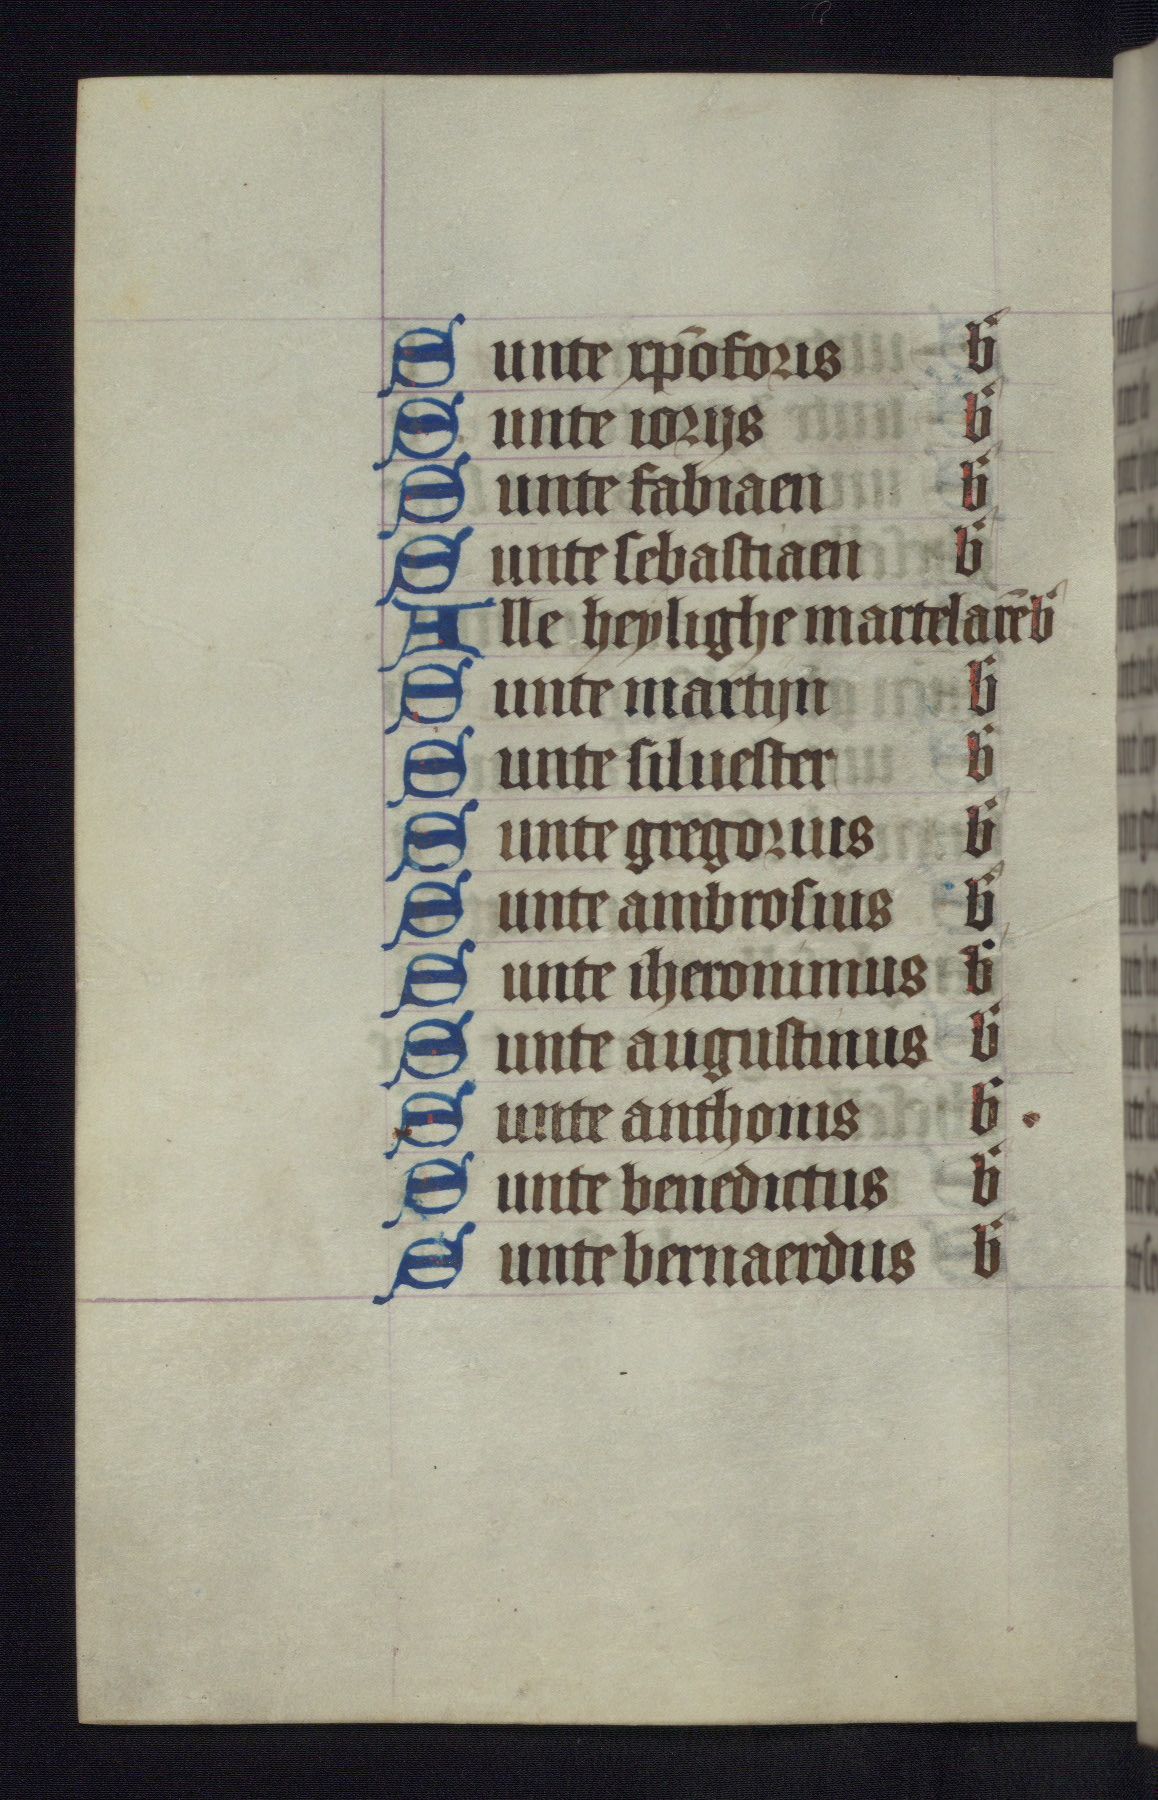 Sunte xp̄oforis b̄
Sunte iorijs b̄
Sunte fabiaen b̄
Sunte sebastiaen b̄
Alle heylighe martelarē b̄
Sunte martijn b̄
Sunte siluester b̄
Sunte gregorius b̄
Sunte ambrosius b̄
Sunte iheronimus b̄
Sunte augustinus b̄
Sunte anthonis b̄
Sunte benedictus b̄
Sunte bernaerdus b̄